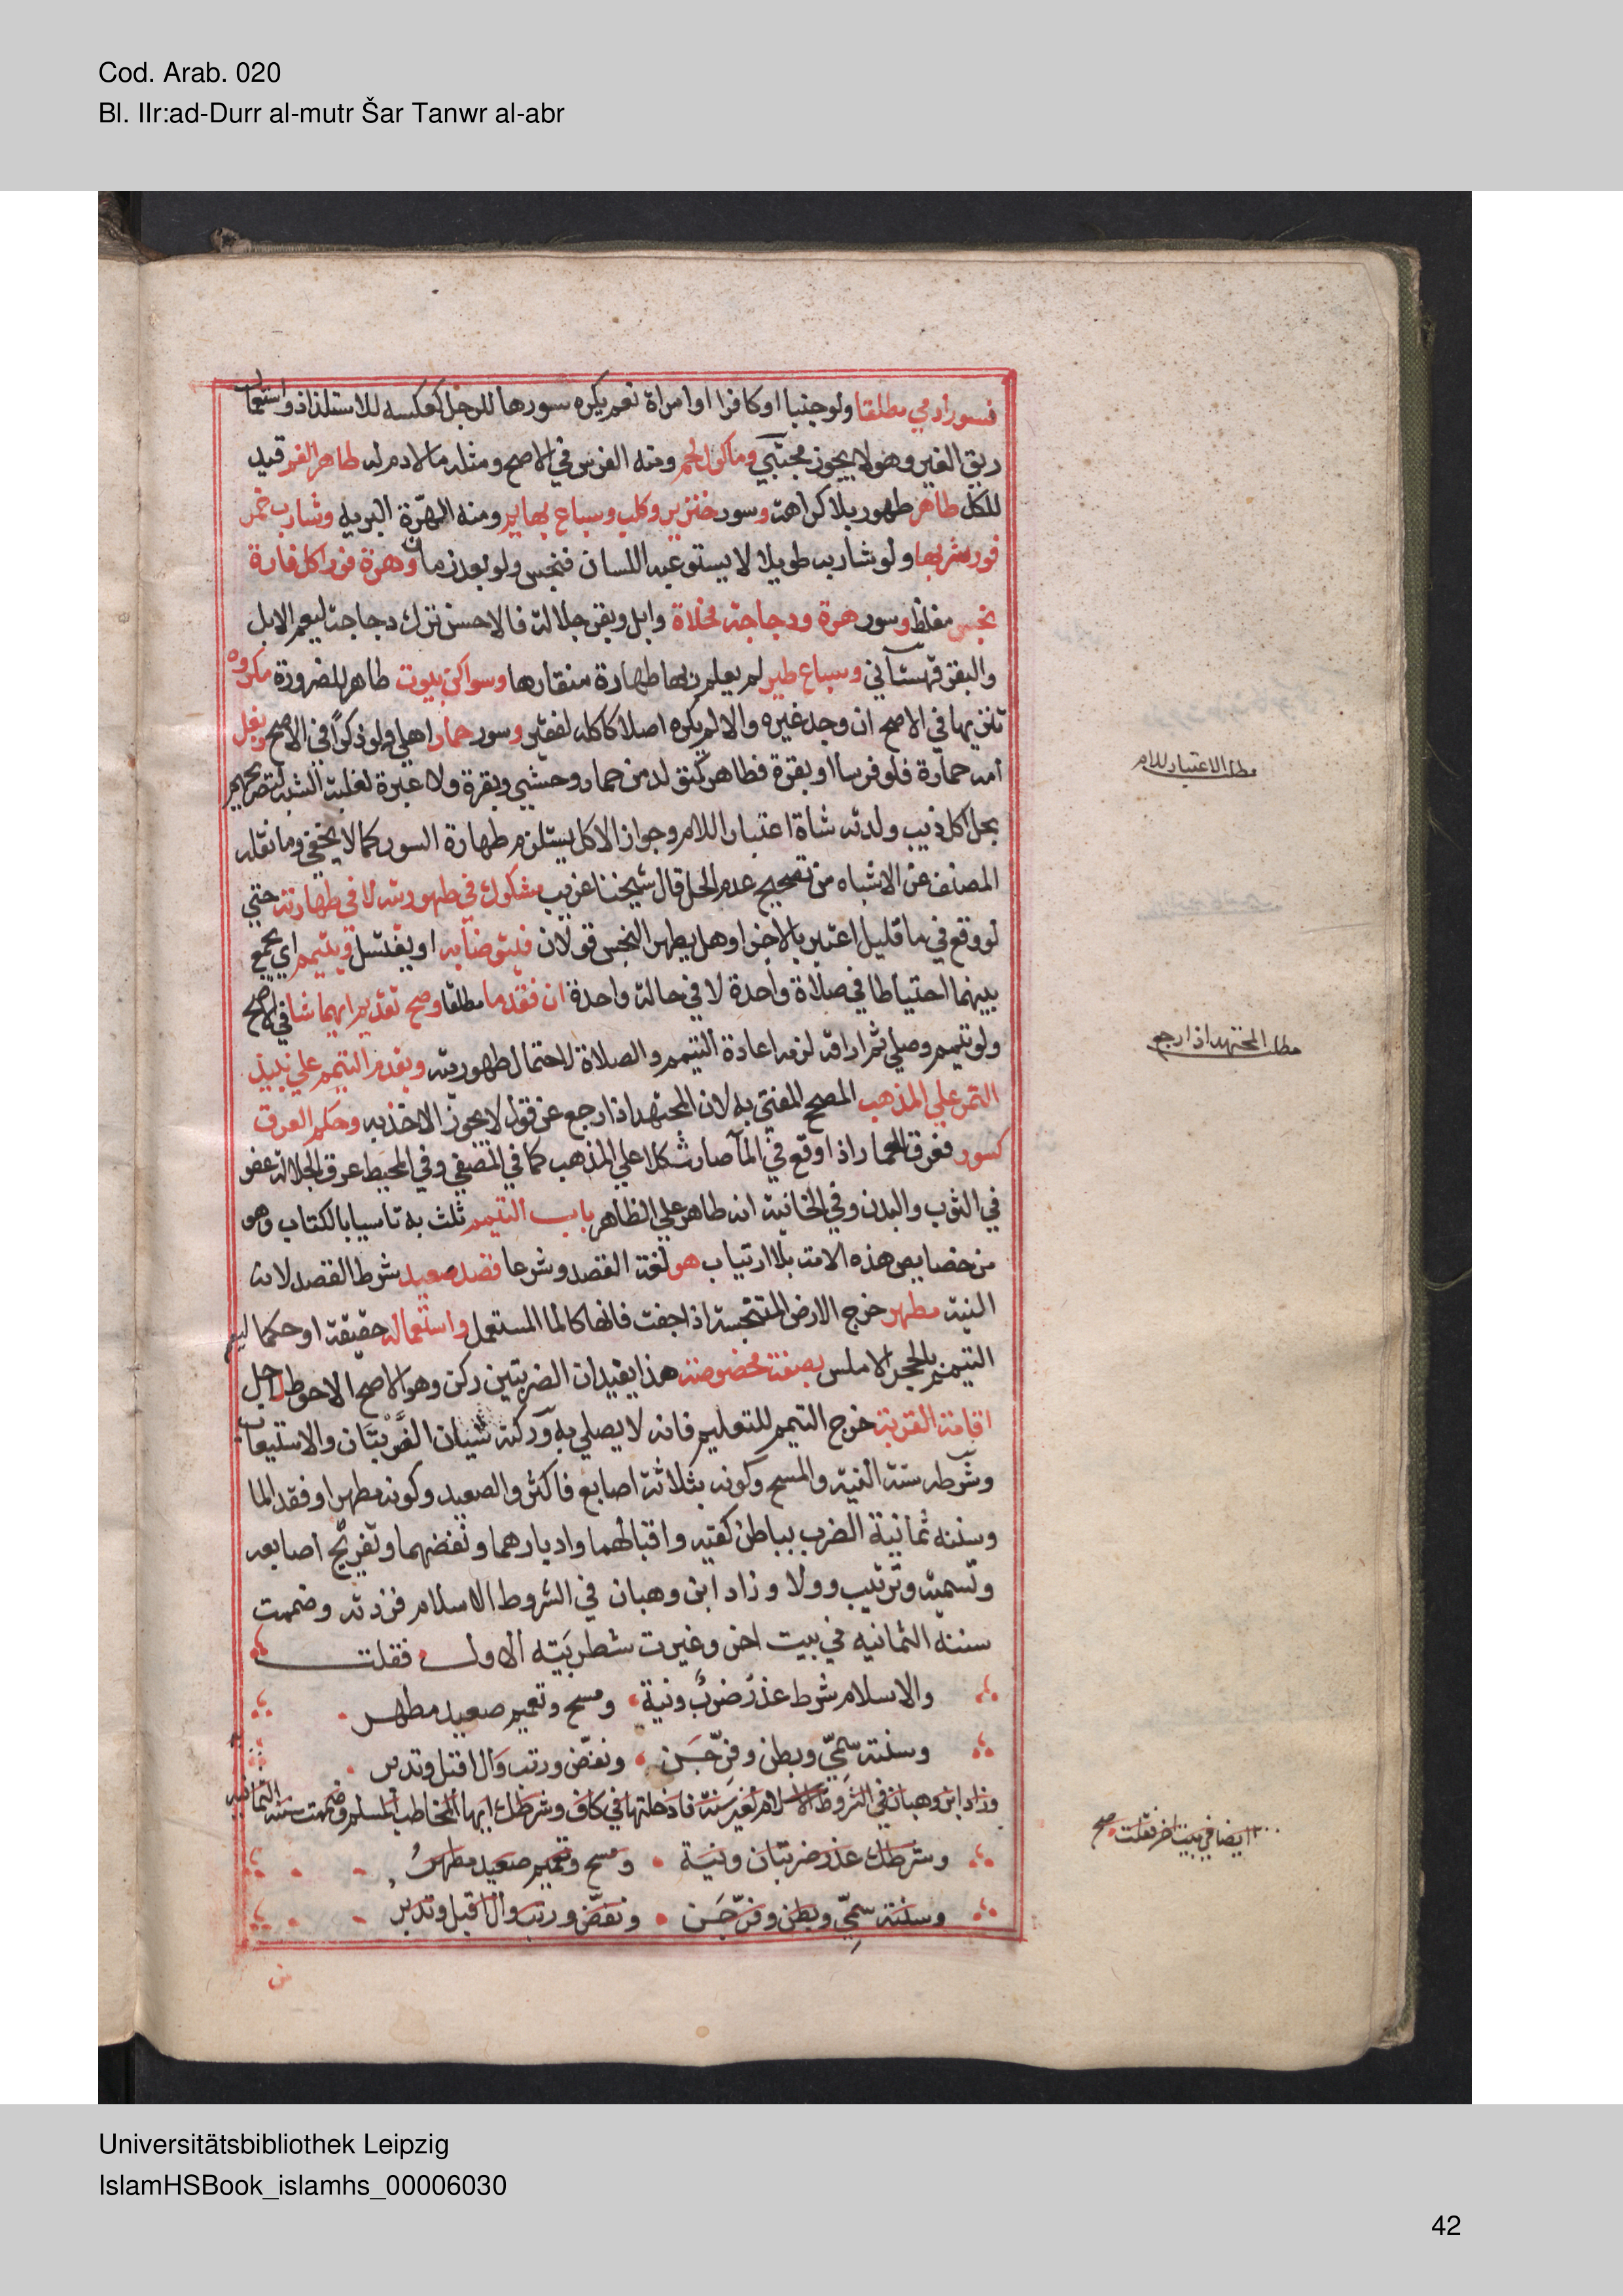 Cod. Arab. 020
Bl. IIr:ad-Durr al-mutr Šar Tanwr al-abr
فسور ادمي مطلقا ولو جنبا او كافرا او امراة نعم يكره سورها للرجل كعكسه للاستلذاذ واستعمال
ريق الغير وهو لا يجوز مجتبي وماكول لحم ومنه الفرس في الاصح ومثله ما لا دم له طاهر الفم قيد
للكل طاهر طهور بلا كراهة وسور خنزير وكلب وسباع بهايم ومنه الهرّة البريه وشارب خمر
فور شربها ولو شاربه طويلا لا يستوعبه اللسان فنجس ولو بعد زمان وهرة فور اكل فارة
نجس مغلظ وسور هرة ودجاجة مخلاة وابل وبقر جلالة فالاحسن ترك دجاجة ليعم الابل
والبقر قهستاني وسباع طير لم يعلم ربها طهارة منقارها وسواكن بيوت طاهر للضرورة مكروه
تنزيها في الاصح ان وجد غيره والا لم يكره اصلا كاكله لفقير وسور حمار اهلي ولو ذكرا في الاصح وبغل
امه حمارة فلو فرسا او بقرة فطاهر كمتولد من حمار وحشي وبقرة ولا عبرة لغلبة الشبه لتصريحهم
بحل اكل ذيب ولدته شاة اعتبارا للام وجواز الاكل يستلزم طهارة السور كما لا يخفي وما نقله
المصنف عن الاشباه من تصحيح عدم الحل قال شيخنا غريب مشكوك في طهوريته لا في طهارته حتي
لو وقع في ما قليل اعتبر بالاجزا وهل يطهر النجس قولان فيتوضا به او يغتسل ويتيمم اي يجمع
بينهما احتياطا في صلاة واحدة لا في حالة واحدة ان فقد ما مطلقا وصح تقديم ايهما شا في الاصح
ولو تيمم وصلي ثم اراقه لزمه اعادة التيمم والصلاة لاحتمال طهوريته ويقدم التيمم علي نبيذ
التمر علي المذهب المصحح المفتي به لان المجتهد اذا رجع عن قول لا يجوز الاخذ به وحكم العرق
كسور فعرق الحمار اذا وقع في الما صار مشكلا علي المذهب كما في المستصفي وفي المحيط عرق الجلالة عفو
في الثوب والبدن وفي الخانية انه طاهر علي الظاهر باب التيمم ثلث به تاسيا بالكتاب وهو
من خصايص هذه الامة بلا ارتياب هو لغة القصد وشرعا قصد صعيد شرط القصد لانه
النية مطهر خرج الارض المتنجسة اذا جفت فانها كالما المستعمل واستعماله حقيقة او حكما ليعم
التيمم بالحجر الاملس بصفة مخصوصة هذا يفيد ان الضربتين ركن وهو الاصح الاحوط لاجل
اقامة القربة خرج التيمم للتعليم فانه لا يصلي به وركنه شيان الضربتان والاستيعاب
وشرطه ستة النية والمسح وكونه بثلاثة اصابع فاكثر والصعيد وكونه مطهرا وفقد الما
وسننه ثمانية الضرب بباطن كفيه واقبالهما وادبارهما ونفضهما وتفريج اصابعه
وتسمية وترتيب وولا وزاد ابن وهبان في الشروط الاسلام فزدته وضممت
سننه الثمانيه في بيت اخر وغيرت شطر بيته الاول فقلت
والاسلام شرط عذر ضرب ونية ومسح وتعميم صعيد مطهر
وسنته سمّي وبطن وفرّجن ونفّض ورتب وال اقبل وتدبر
وزاد ابن وهبان في الشروط الاسلام لغير ستة فادخلتها في كاف وشرطك ايها المخاطب المسلم وضممت سننه الثمانيه
وشرطك عذر ضربتان ونية ومسح وتعميم صعيد مطهر
وسنته سمّي وبطن وفرّجن ونفّض ورتب وال اقبل وتدبر
مطلب الاعتبار للام
مطلب المجتهد اذا رجع
ايضا في بيت اخر فقلت صح
Universitätsbibliothek Leipzig
IslamHSBook_islamhs_00006030
42